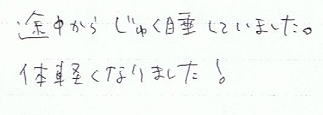 途中から じゅく睡していました。
体軽くなりました！